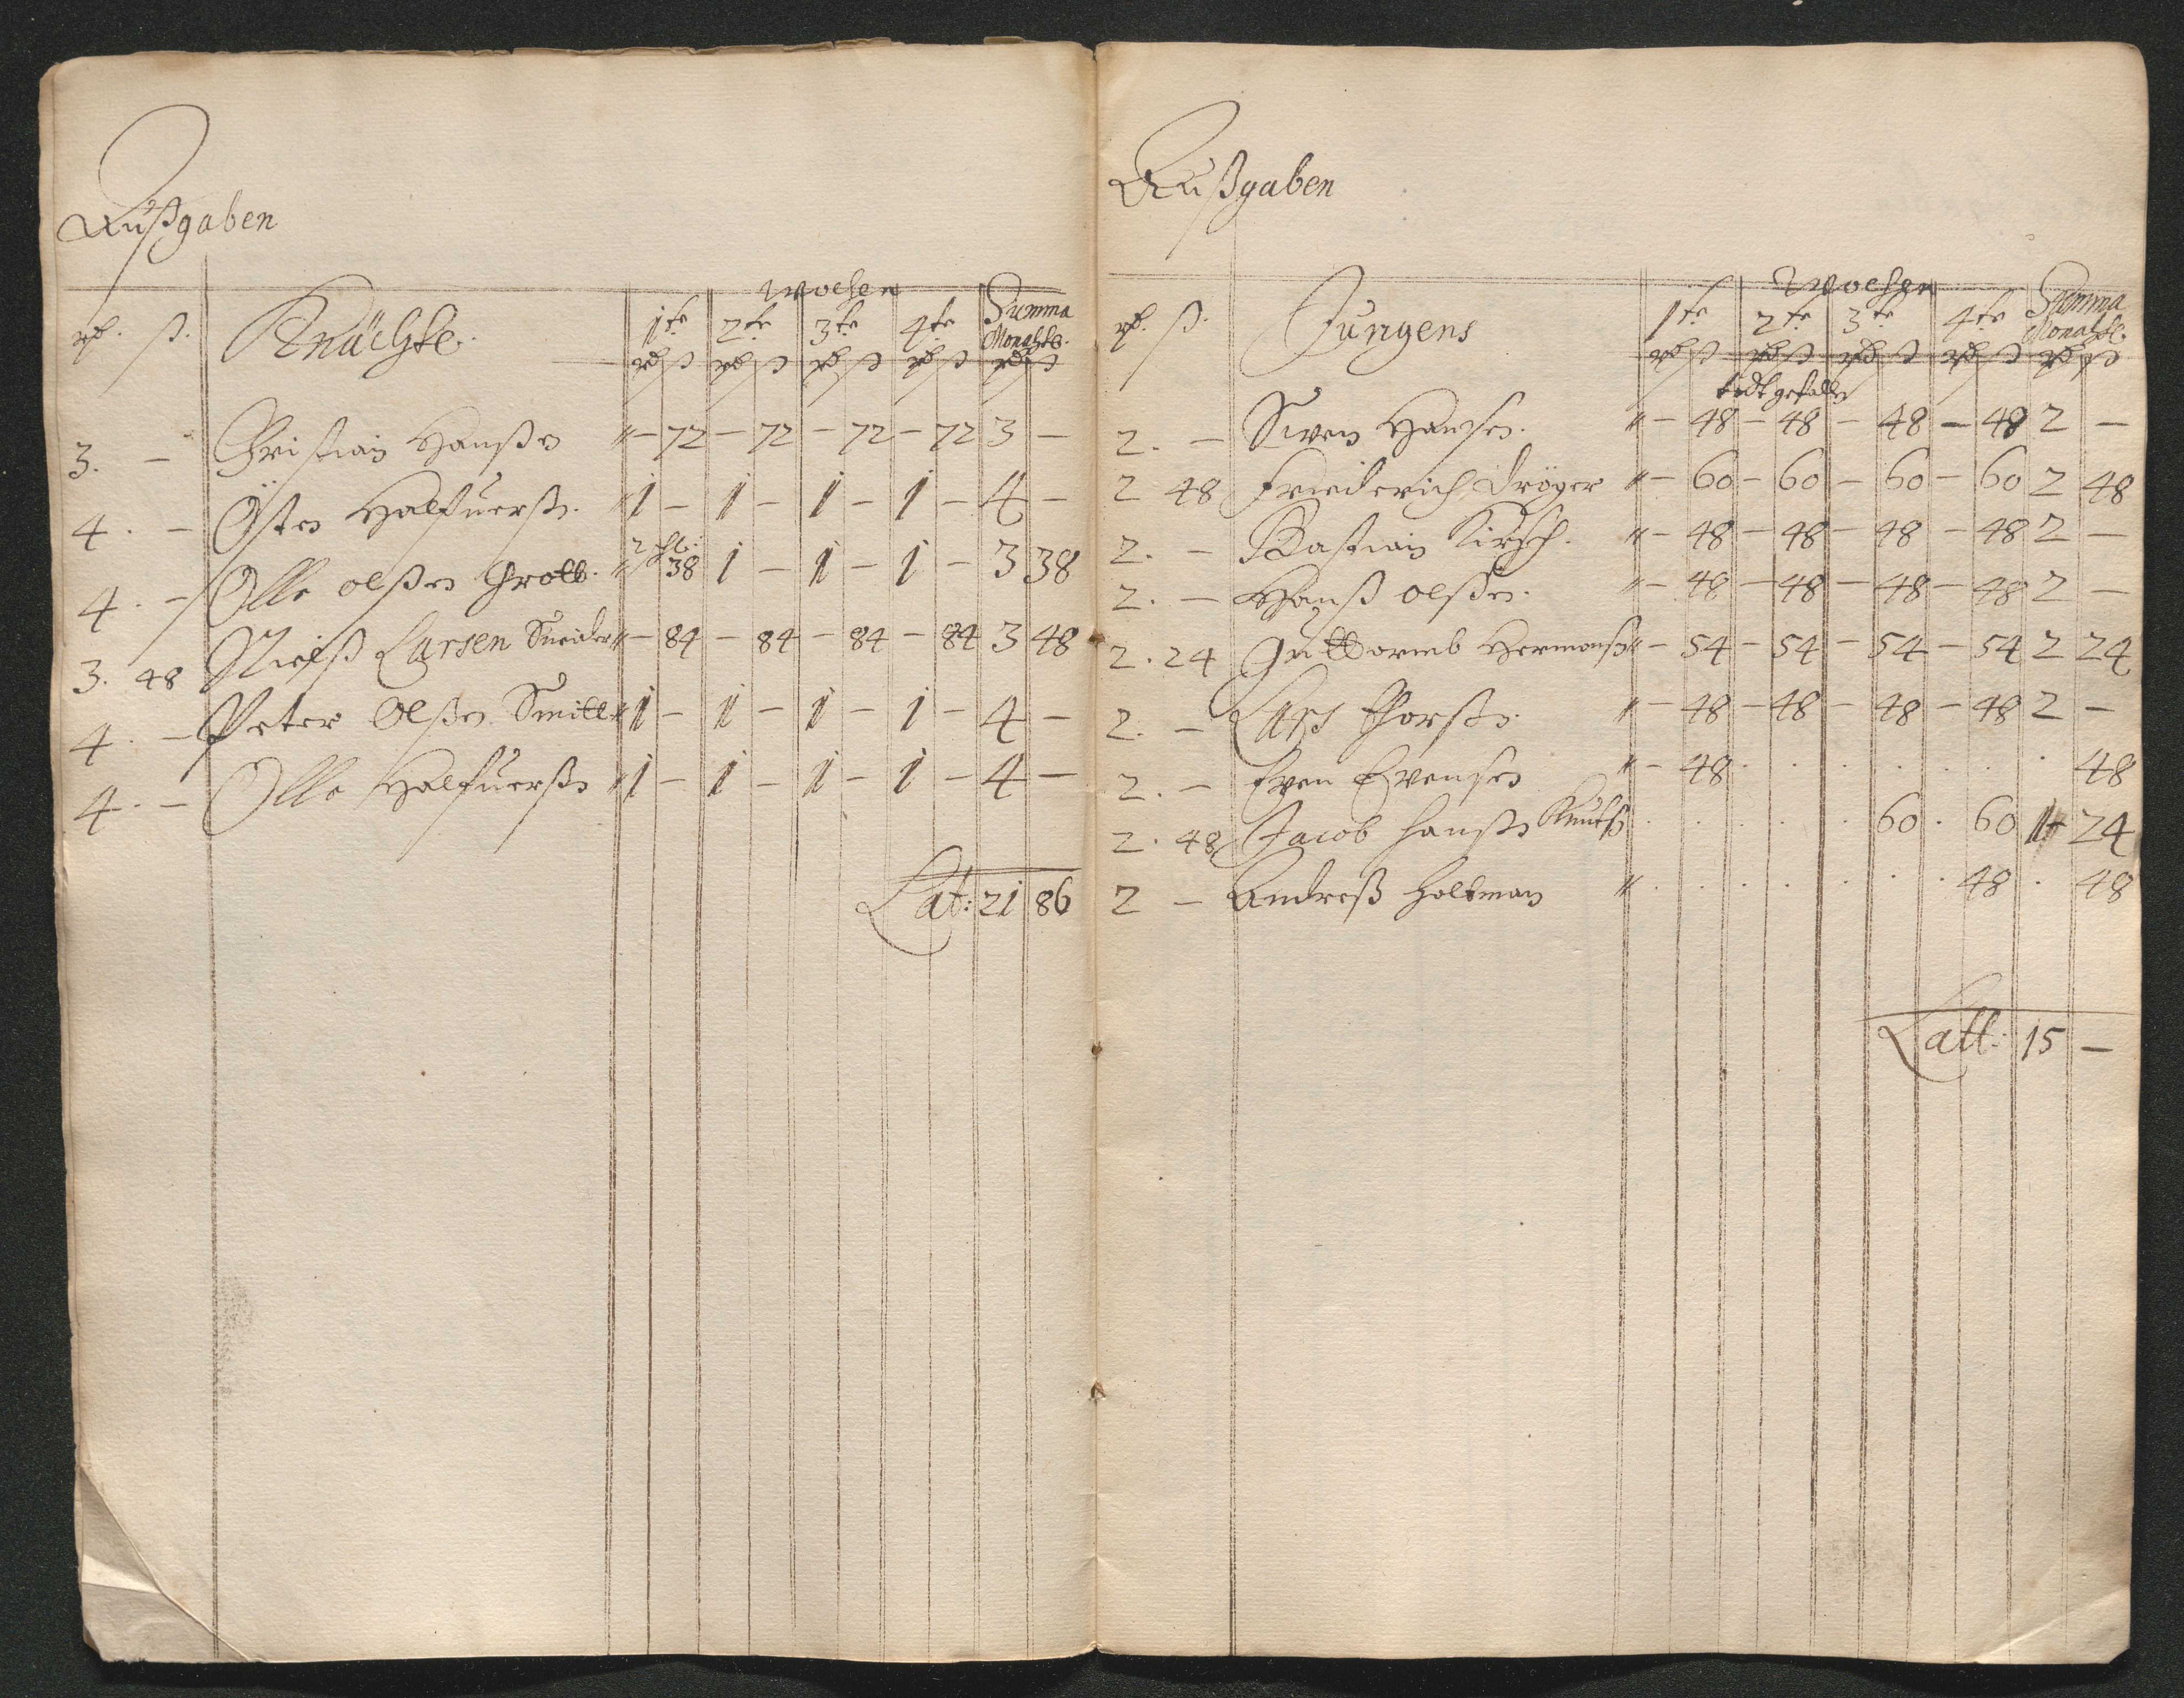 Außgaben
rd. ß. Knächte. Wochen Summa
1te 2te 3te 4te Monahtl.
rd ß rd ß rd ß rd ß rd ß
3. – Christian Hanßen " – 72 – 72 – 72 – 72 3 –
4. – Östen Halfuerß. " 1 – 1 – 1 – 1 – 4 –
4. – Olle olßen Grott. " 38 1 – 1 – 1 – 3 38
3. 48 Nielß Larsen Sneider " – 84 – 84 – 84 – 84 3 48
4. – Peter Olßen Smitt " 1 – 1 – 1 – 1 – 4 –
4. – Olle Halfuerßen " 1 – 1 – 1 – 1 – 4 –
Lat: 21 86
Außgaben
rd. ß. Jungens Wochen Summa
1te 2te 3te 4te Monahtl.
rd ß rd ß rd ß rd ß rd ß
todt gefallen
2. – Swen Hansen. " – 48 – 48 – 48 – 48 2 –
2 48 Friederich Dröger " – 60 – 60 – 60 – 60 2 48
2. – Bastian Kirsch. " – 48 – 48 – 48 – 48 2 –
2. – Hanß olßen. " – 48 – 48 – 48 – 48 2 –
2. 24 Guttormb Hermanß " – 54 – 54 – 54 – 54 2 24
2. – Lars Thorßen. " – 48 – 48 – 48 – 48 2 –
2. – Even Evensen " – 48 . . . . . . . 48
2. 48 Jacob Hanßen Knutß . . . . . 60 . 60 1 24
2 – Andreß Holtman " . . . . . . . 48 . 48
Latt: 15 –